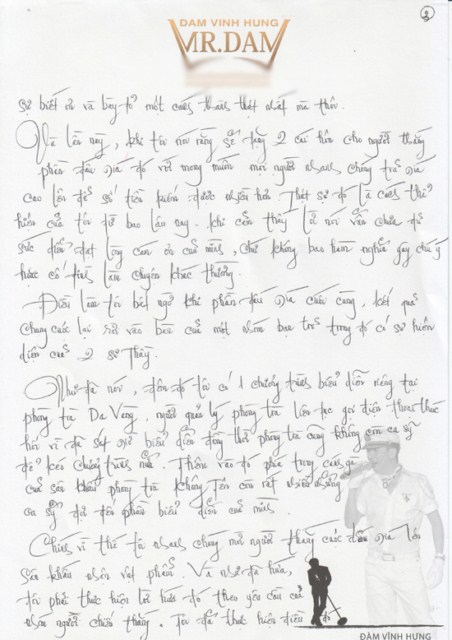 2
DAM VINH HUNG
MR.DAM
sự biết ơn và bày tỏ một cách thành thật nhất mà thôi.
Và lần này, khi tôi nói rằng sẽ tặng 2 cái hôn cho người thắng
phiên đấu giá đó với mong muốn mọi người nhanh chóng trả giá
cao lên để số tiền quyên được nhiều hơn. Thật sự đó là cách thể
hiện của tôi từ bao lâu nay. Khi cảm thấy lời nói vẫn chưa đủ
sức diễn đạt lòng cảm ơn của mình, chứ không bao hàm nghĩa gây chú ý
hoặc cố tình làm chuyện khác thường.
Điều làm tôi bất ngờ khi phần đấu giá cuối cùng, kết quả
chung cuộc lại rơi vào bàn của một nhóm bạn trẻ trong đó có sự hiện
diện của 2 sư thầy.
Như đã nói, đêm đó tôi có 1 chương trình biểu diễn riêng tại
phòng trà Da Vàng. người quản lý phòng trà liên tục gọi điện thoại thúc
hối vì đã sát giờ biểu diễn đồng thời phòng trà cũng không còn ca sỹ
để kéo chương trình nữa. Thêm vào đó phía trong cánh gà
của sân khấu phòng trà không còn
ca sỹ đã tới phần biểu diễn của mình.
Chính vì thế tôi nhanh chóng mời người thắng cuộc đấu giá lên
sân khấu nhận vật phẩm. Và như đã hứa,
tôi phải thực hiện lời hứa đó theo yêu cầu của
những người chiến thắng. Tôi đã thực hiện điều đó
ĐÀM VĨNH HƯNG